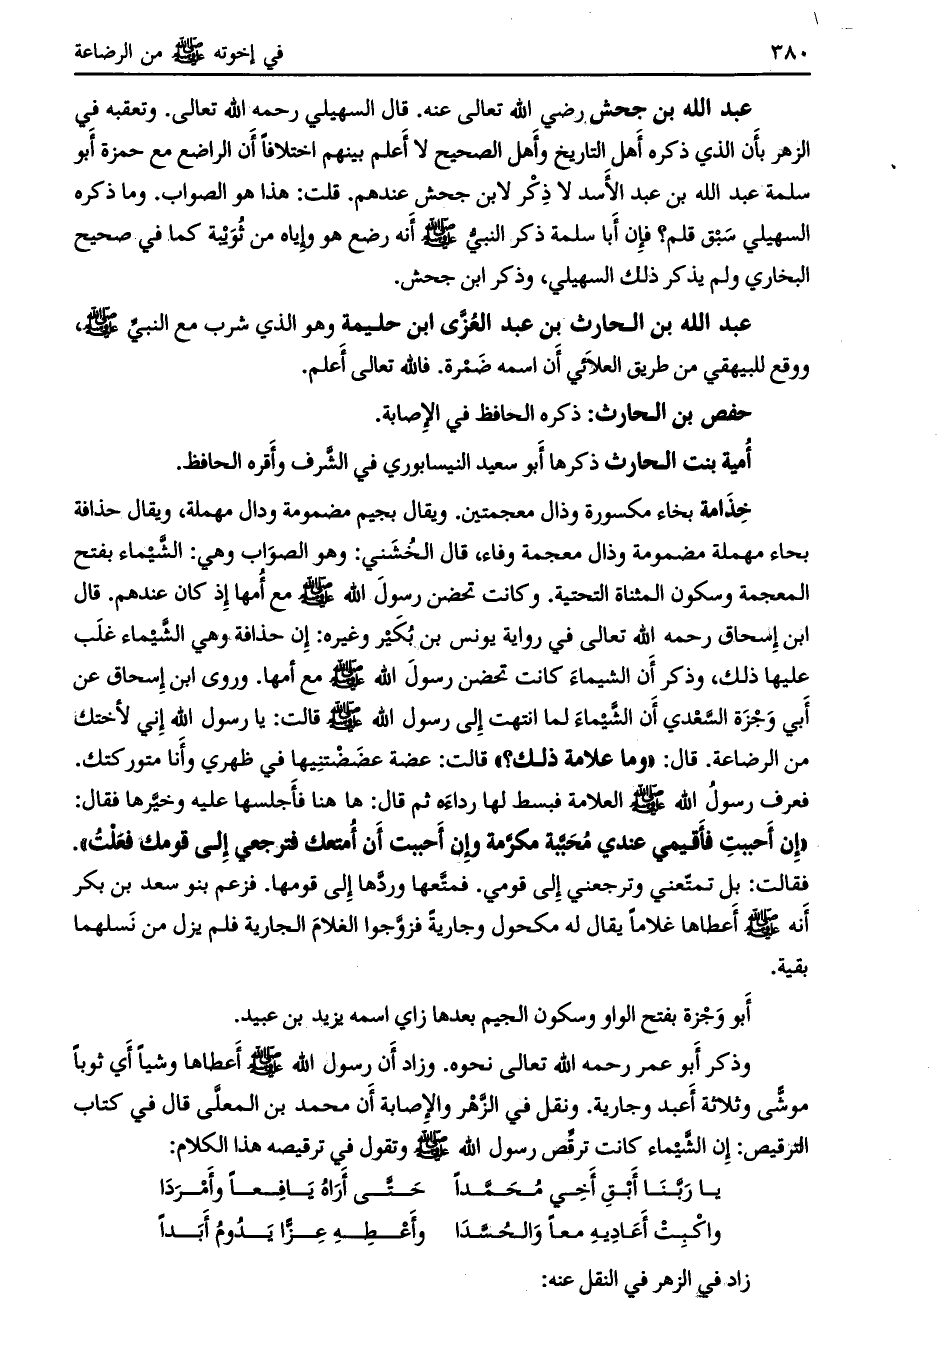 ٣٨٠
في إخوته ﷺ من الرضاعة
عبد الله بن جحش رضي الله تعالى عنه. قال السهيلي رحمه الله تعالى. وتعقبه في
الزهر بأَن الذي ذكره أَهل التاريخ وأَهل الصحيح لا أَعلم بينهم اختلافاً أَن الراضع مع حمزة أَبو
سلمة عبد الله بن عبد الأَسد لا ذِكْر لابن جحش عندهم. قلت: هذا هو الصواب. وما ذكره
السهيلي سَبْق قلم؟ فإِن أَبا سلمة ذكر النبيُّ ﷺ أَنه رضع هو وإِياه من ثُوَيْبة كما في صحيح
البخاري ولم يذكر ذلك السهيلي، وذكر ابن جحش.
عبد الله بن الحارث بن عبد العُزَّى ابن حليمة وهو الذي شرب مع النبيِّ ﷺ،
ووقع للبيهقي من طريق العلائي أَن اسمه ضَمْرة. فالله تعالى أَعلم.
حفص بن الحارث: ذكره الحافظ في الإِصابة.
أُمية بنت الحارث ذكرها أَبو سعيد النيسابوري في الشَّرف وأَقره الحافظ.
خِذَامة بخاء مكسورة وذال معجمتين. ويقال بجيم مضمومة ودال مهملة، ويقال حذافة
بحاء مهملة مضمومة وذال معجمة وفاء، قال الخُشَني: وهو الصوَاب وهي: الشَّيْماء بفتح
المعجمة وسكون المثناة التحتية. وكانت تحضن رسولَ الله ﷺ مع أُمها إِذ كان عندهم. قال
ابن إِسحاق رحمه الله تعالى في رواية يونس بن بُكَيْر وغيره: إِن حذافة وهي الشَّيْماء غلَب
عليها ذلك، وذكر أَن الشيماءَ كانت تحضن رسولَ الله ﷺ مع أمها. وروى ابن إِسحاق عن
أَبي وَجْزَة السَّعْدي أَن الشَّيْماءَ لما انتهت إِلى رسول الله ﷺ قالت: يا رسول الله إِني لأختك
من الرضاعة. قال: «وما علامة ذلك؟» قالت: عضة عضَضْتنِيها في ظهري وأَنا متوركتك.
فعرف رسولُ الله ﷺ العلامة فبسط لها رداءَه ثم قال: ها هنا فأَجلسها عليه وخيَّرها فقال:
«إِن أَحببتِ فأَقيمي عندي مُحَبَّبة مكرَّمة وإِن أَحببت أَن أُمتعك فترجعي إِلى قومك فعَلْتُ».
فقالت: بل تمتّعني وترجعني إِلى قومي. فمتَّعها وردَّها إِلى قومها. فزعم بنو سعد بن بكر
أَنه ﷺ أَعطاها غلاماً يقال له مكحول وجاريةً فزوَّجوا الغلامَ الجارية فلم يزل من نَسلهما
بقية.
أَبو وَجْزة بفتح الواو وسكون الجيم بعدها زاي اسمه يزيد بن عبيد.
وذكر أَبو عمر رحمه الله تعالى نحوه. وزاد أَن رسول الله ﷺ أَعطاها وشياً أَي ثوباً
موشَّى وثلاثة أَعبد وجارية. ونقل في الزَّهْر والإِصابة أَن محمد بن المعلَّى قال في كتاب
الترقيص: إِن الشَّيْماء كانت ترقِّص رسول الله ﷺ وتقول في ترقيصه هذا الكلام:
يا رَبَّنَا أَبْقِ أَخِي مُحَمَّداً حَتَّى أَرَاهُ يَافِعاً وأَمْرَدَا
واكْبِتْ أَعَادِيهِ معاً وَالحُسَّدَا وأَعْطِهِ عِزًّا يَدُومُ أَبَداً
زاد في الزهر في النقل عنه: